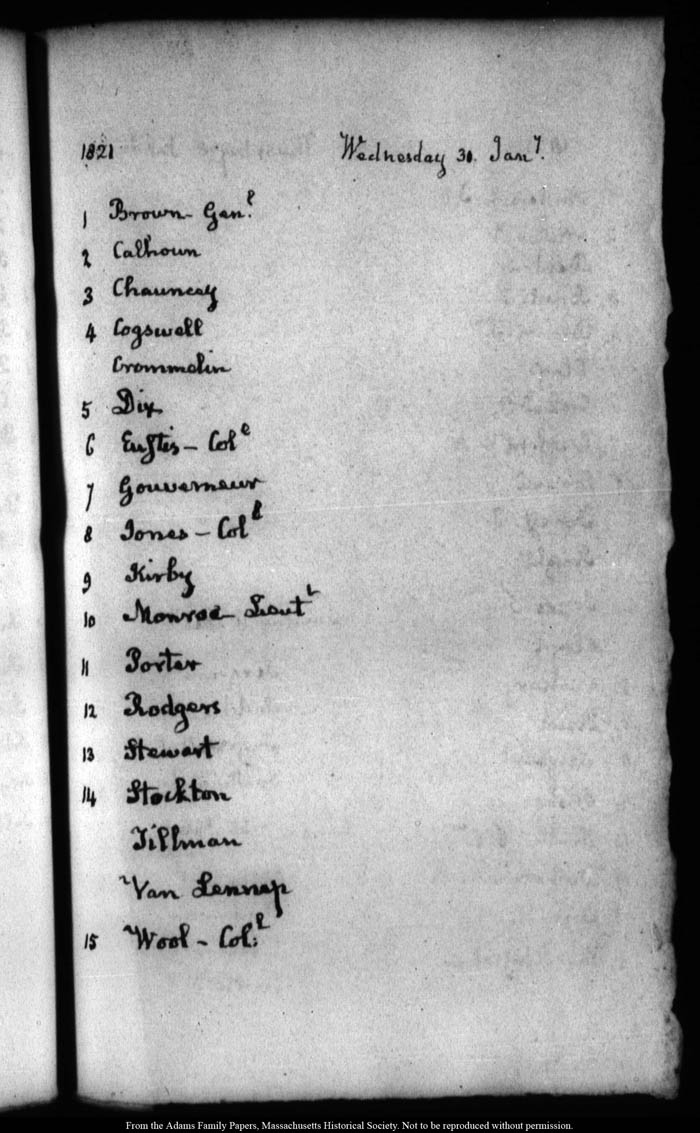 1821 Wednesday 31. Jany.
1 Brown - Genl.
2 Calhoun
3 Chauncey
4 Cogswell
Crommelin
5 Dix
6 Eustis - Col
7 Gouverneur
8 Jones - Coll
9 Kirby
10 Monroe Lieut
11 Porter
12 Rodgers
13 Stewart
14 Stockton
Tillman
Van Lennep
15 Wool - Col.l
From the Adams Family Papers, Massachusetts Historical Society. Not to be reproduced without permission.